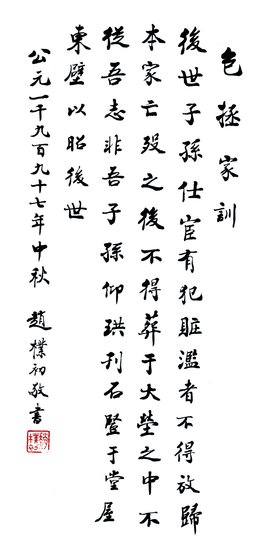 包拯家訓
後世子孫仕宦有犯贓濫者不得放歸
本家亡歿之後不得葬于大塋之中不
從吾志非吾子孫仰珙刊石豎于堂屋
東壁以昭後世
公元一千九百九十七年中秋 趙樸初敬書